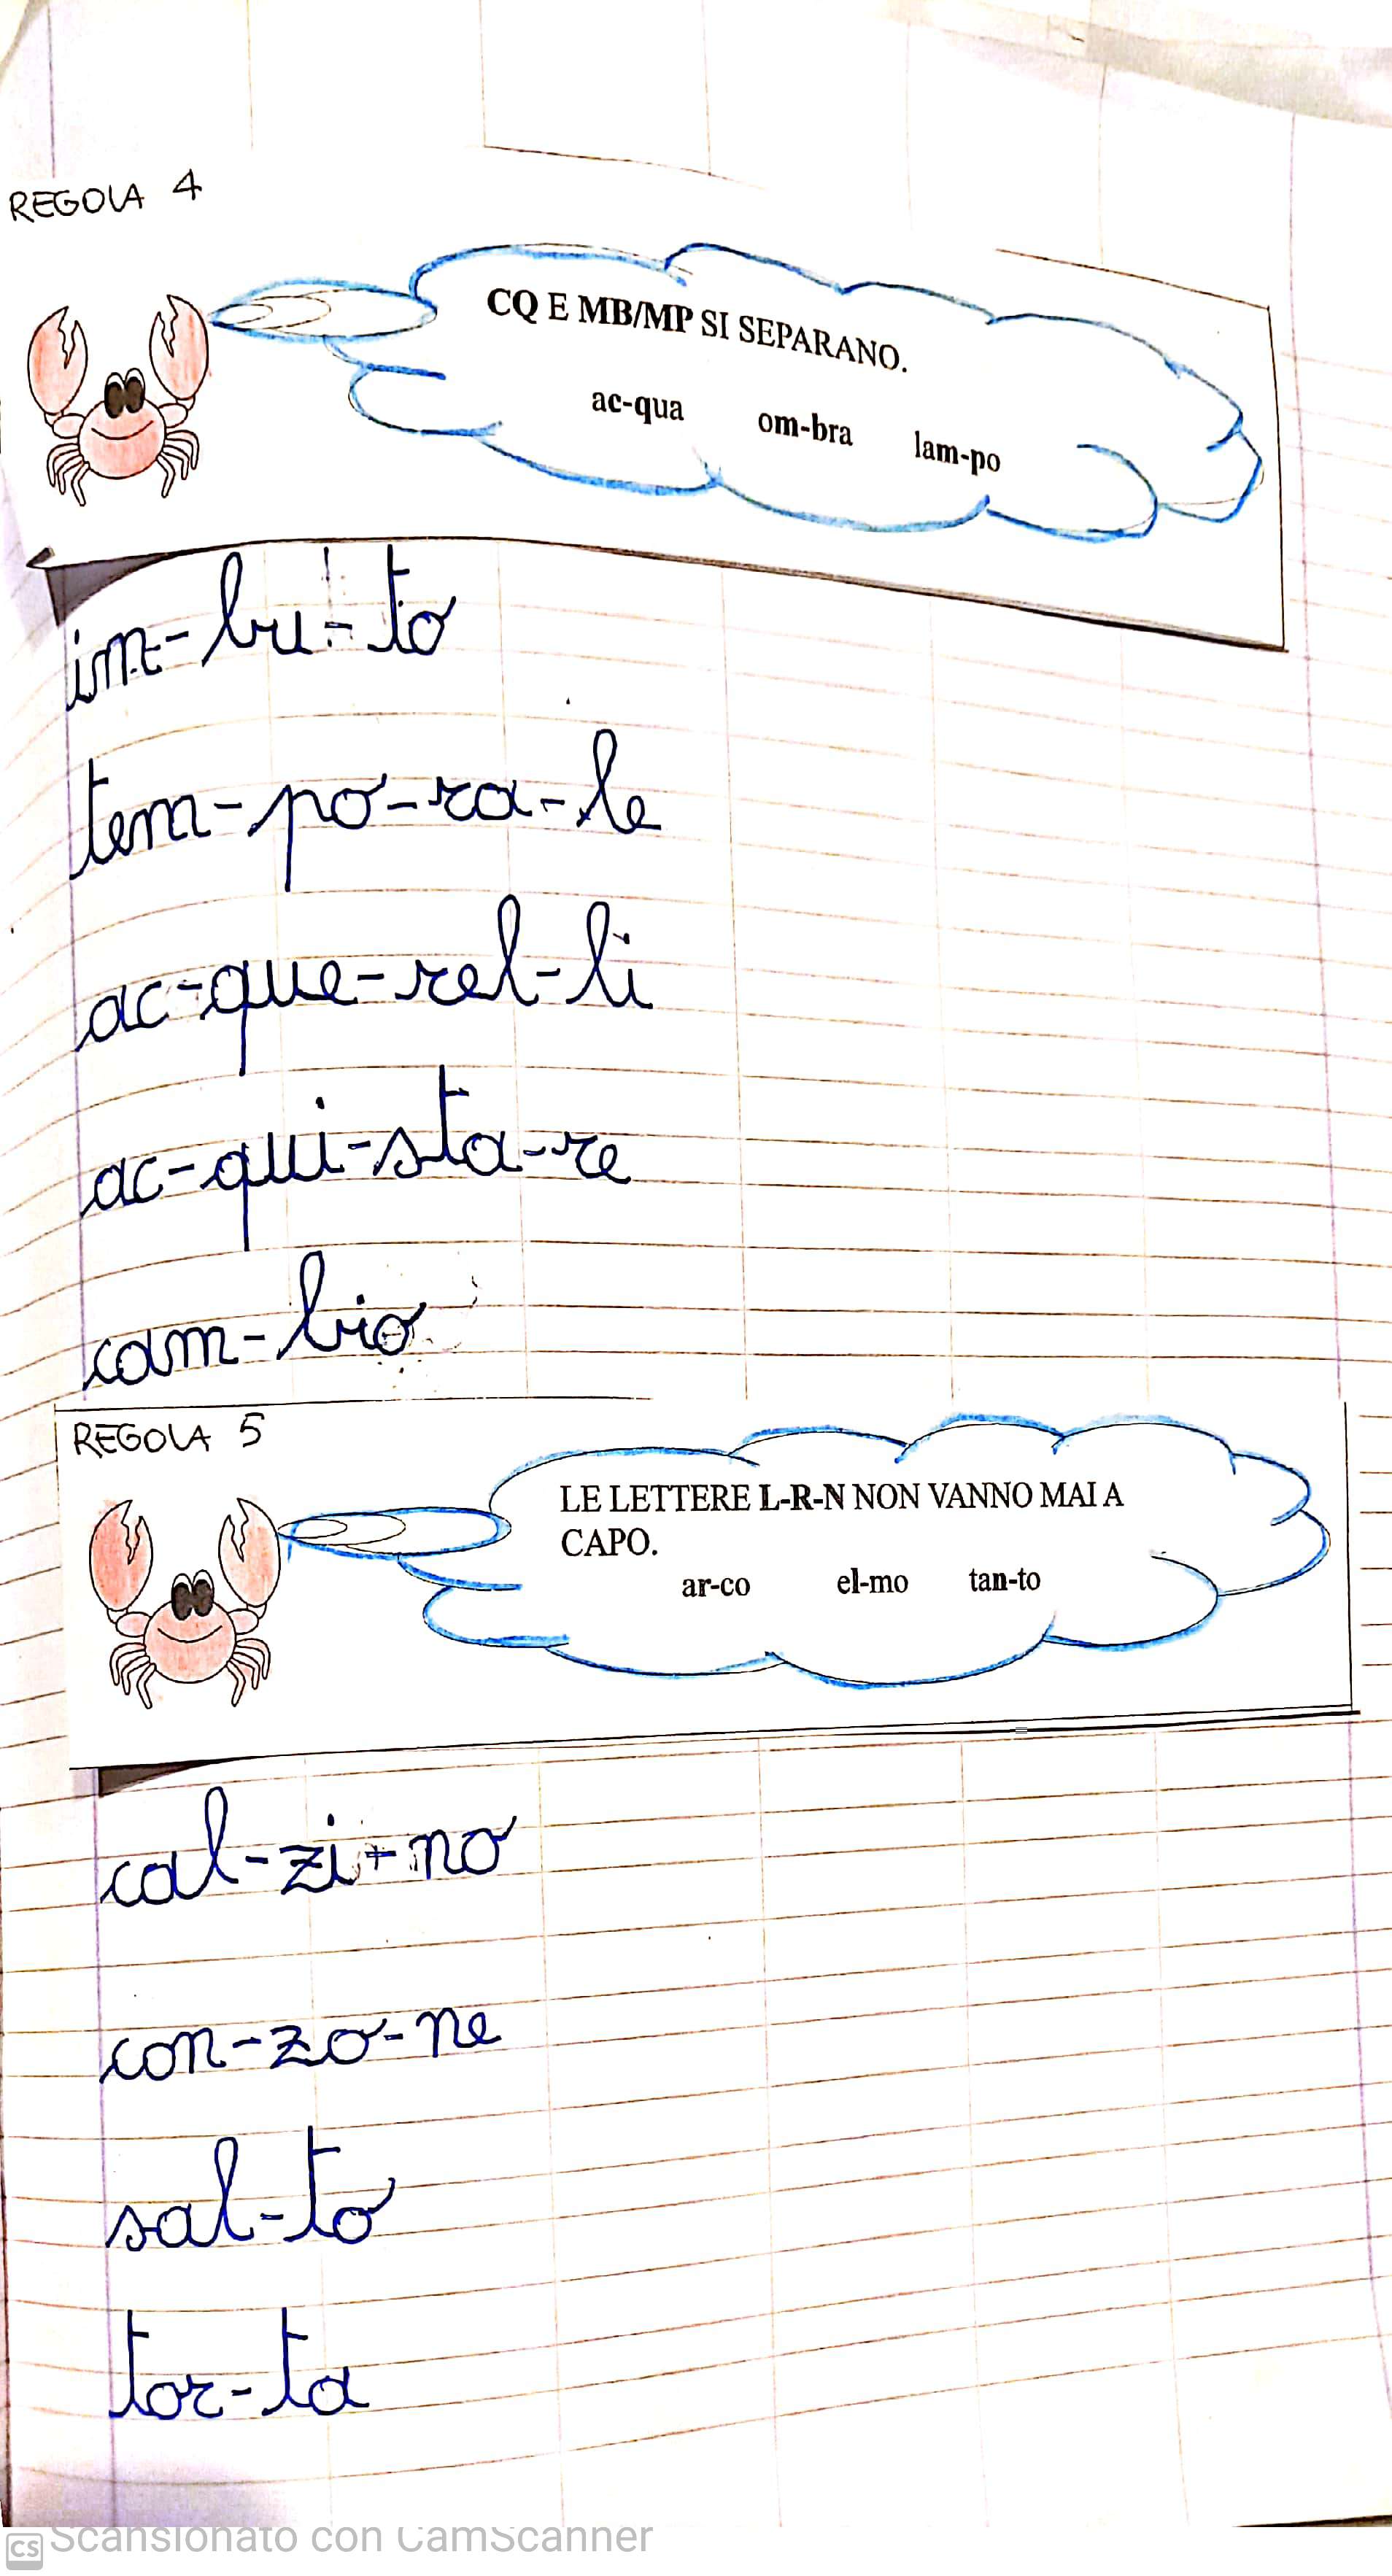 REGOLA 4
CQ E MB/MP SI SEPARANO.
ac-qua om-bra lam-po
im-bu-to
tem-po-ra-le
ac-que-rel-li
ac-qui-sta-re
cam-bio
REGOLA 5
LE LETTERE L-R-N NON VANNO MAI A
CAPO.
ar-co el-mo tan-to
cal-zi-no
con-zo-ne
sal-to
tor-ta
CS Scansionato con CamScanner